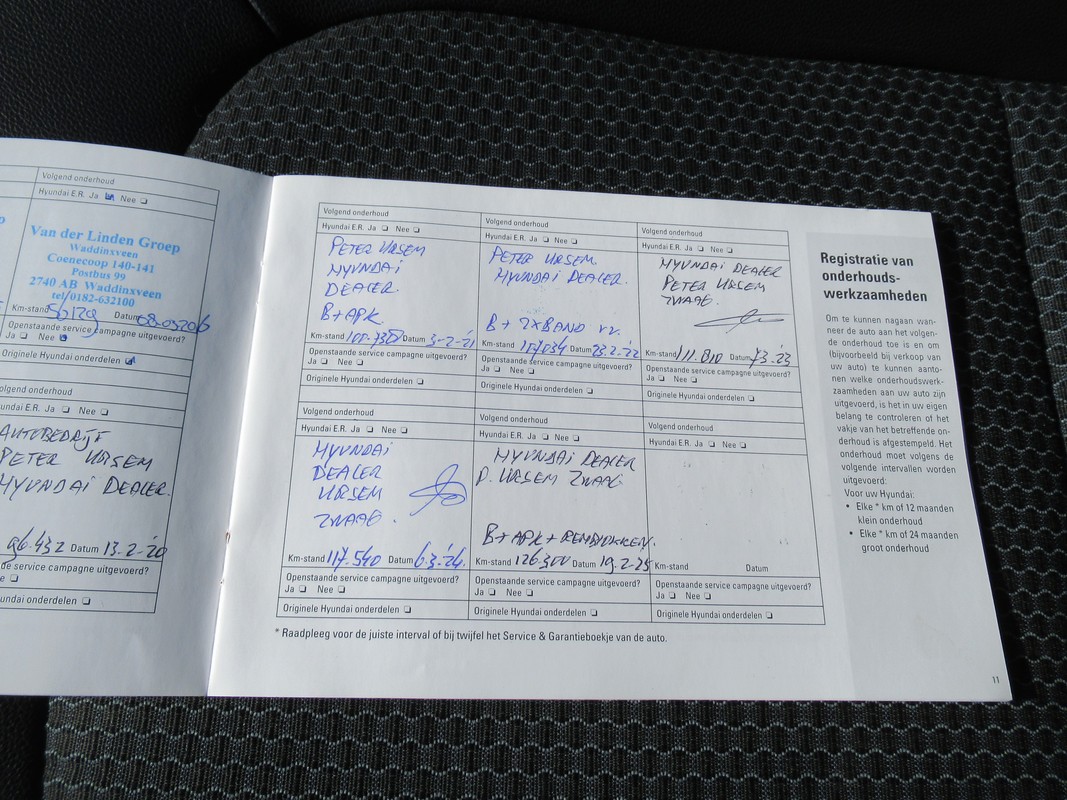 Volgend onderhoud
Hyundai E.R. Ja Nee
Van der Linden Groep
Waddinxveen
Coenecoop 140-141
Postbus 99
2740 AB Waddinxveen
tel/0182-632100
Km-stand Datum
Openstaande service campagne uitgevoerd?
Ja Nee
Originele Hyundai onderdelen
olgend onderhoud
undai E.R. Ja Nee
AUTOBEDRIJF
PETER URSEM
HYUNDAI DEALER.
96.432 Datum 13-2-'20
de service campagne uitgevoerd?
e
undai onderdelen
Volgend onderhoud
Hyundai E.R. Ja Nee
PETER URSEM
HYUNDAI
DEALER.
B+APK.
Km-stand Datum 3-2-'21
Openstaande service campagne uitgevoerd?
Ja Nee
Originele Hyundai onderdelen
Volgend onderhoud
Hyundai E.R. Ja Nee
PETER URSEM
HYUNDAI DEALER.
B+ 2XBAND VV.
Km-stand 107034 Datum 23.2.'22
Openstaande service campagne uitgevoerd?
Ja Nee
Originele Hyundai onderdelen
Volgend onderhoud
Hyundai E.R. Ja Nee
HYUNDAI DEALER
PETER URSEM
ZWAAG.
Km-stand 111.810 Datum
Openstaande service campagne uitgevoerd?
Ja Nee
Originele Hyundai onderdelen
Volgend onderhoud
Hyundai E.R. Ja Nee
HYUNDAI
DEALER
URSEM
ZWAAG.
Km-stand 117.540 Datum 6.3.'24.
Openstaande service campagne uitgevoerd?
Ja Nee
Originele Hyundai onderdelen
Volgend onderhoud
Hyundai E.R. Ja Nee
HYUNDAI DEALER
P. URSEM ZWAAG.
B+APK+REMBLOKKEN.
Km-stand 126.300 Datum 19.2-25
Openstaande service campagne uitgevoerd?
Ja Nee
Originele Hyundai onderdelen
Volgend onderhoud
Hyundai E.R. Ja Nee
Km-stand Datum
Openstaande service campagne uitgevoerd?
Ja Nee
Originele Hyundai onderdelen
* Raadpleeg voor de juiste interval of bij twijfel het Service & Garantieboekje van de auto.
Registratie van
onderhouds-
werkzaamheden
Om te kunnen nagaan wan-
neer de auto aan het volgen-
de onderhoud toe is en om
(bijvoorbeeld bij verkoop van
uw auto) te kunnen aanto-
nen welke onderhoudswerk-
zaamheden aan uw auto zijn
uitgevoerd, is het in uw eigen
belang te controleren of het
vakje van het betreffende on-
derhoud is afgestempeld. Het
onderhoud moet volgens de
volgende intervallen worden
uitgevoerd:
Voor uw Hyundai:
• Elke * km of 12 maanden
klein onderhoud
• Elke * km of 24 maanden
groot onderhoud
11